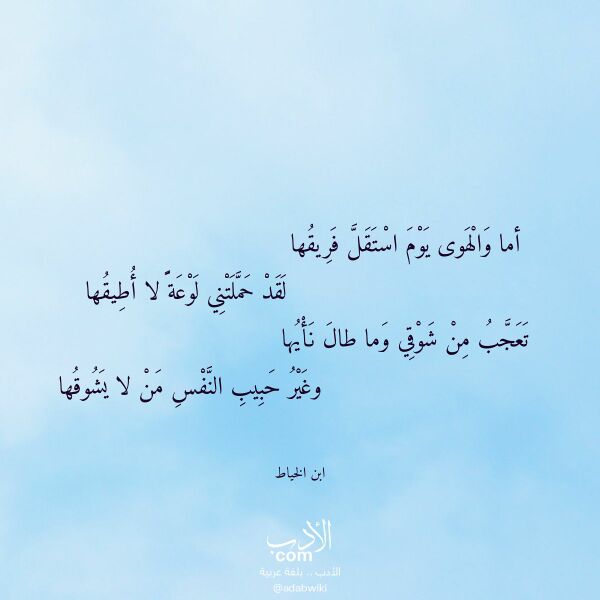 أما وَالْهَوى يَوْمَ اسْتَقَلَّ فَرِيقُها
لَقَدْ حَمَّلَتْنِي لَوْعَةً لا أُطِيقُها
تَعَجَّبُ مِنْ شَوْقِي وَما طالَ نَأْيُها
وغَيْرُ حَبِيبِ النَّفْسِ مَنْ لا يَشُوقُها
ابن الخياط
الأدب
.com
الأدب .. بلغة عربية
@adabwiki